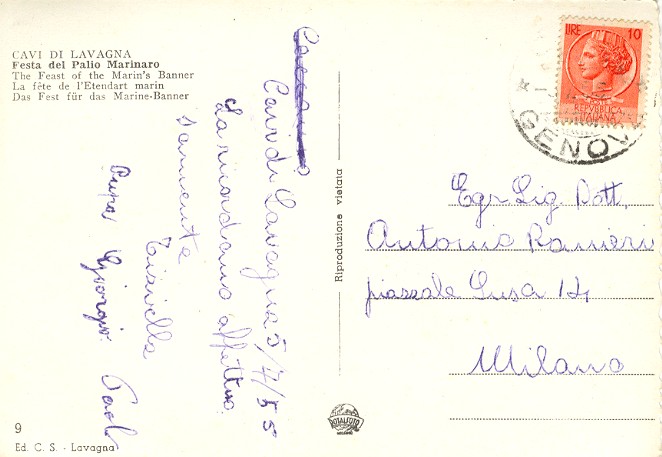 CAVI DI LAVAGNA
Festa del Palio Marinaro
The Feast of the Marin's Banner
La fête de l'Etendart marin
Das Fest für das Marine-Banner
Cavi di Lavagna 5/7/55
La ricordano affettuo
samente
Giorgio Paol
9
Ed. C. S. - Lavagna
Riproduzione vietata
ROTALFOTO
MILANO
LIRE 10
REPVBBLICA
ITALIANA
GENOV
Egr. Sig. Dott.
Antonio Ranieri
piazzale Susa 14
Milano